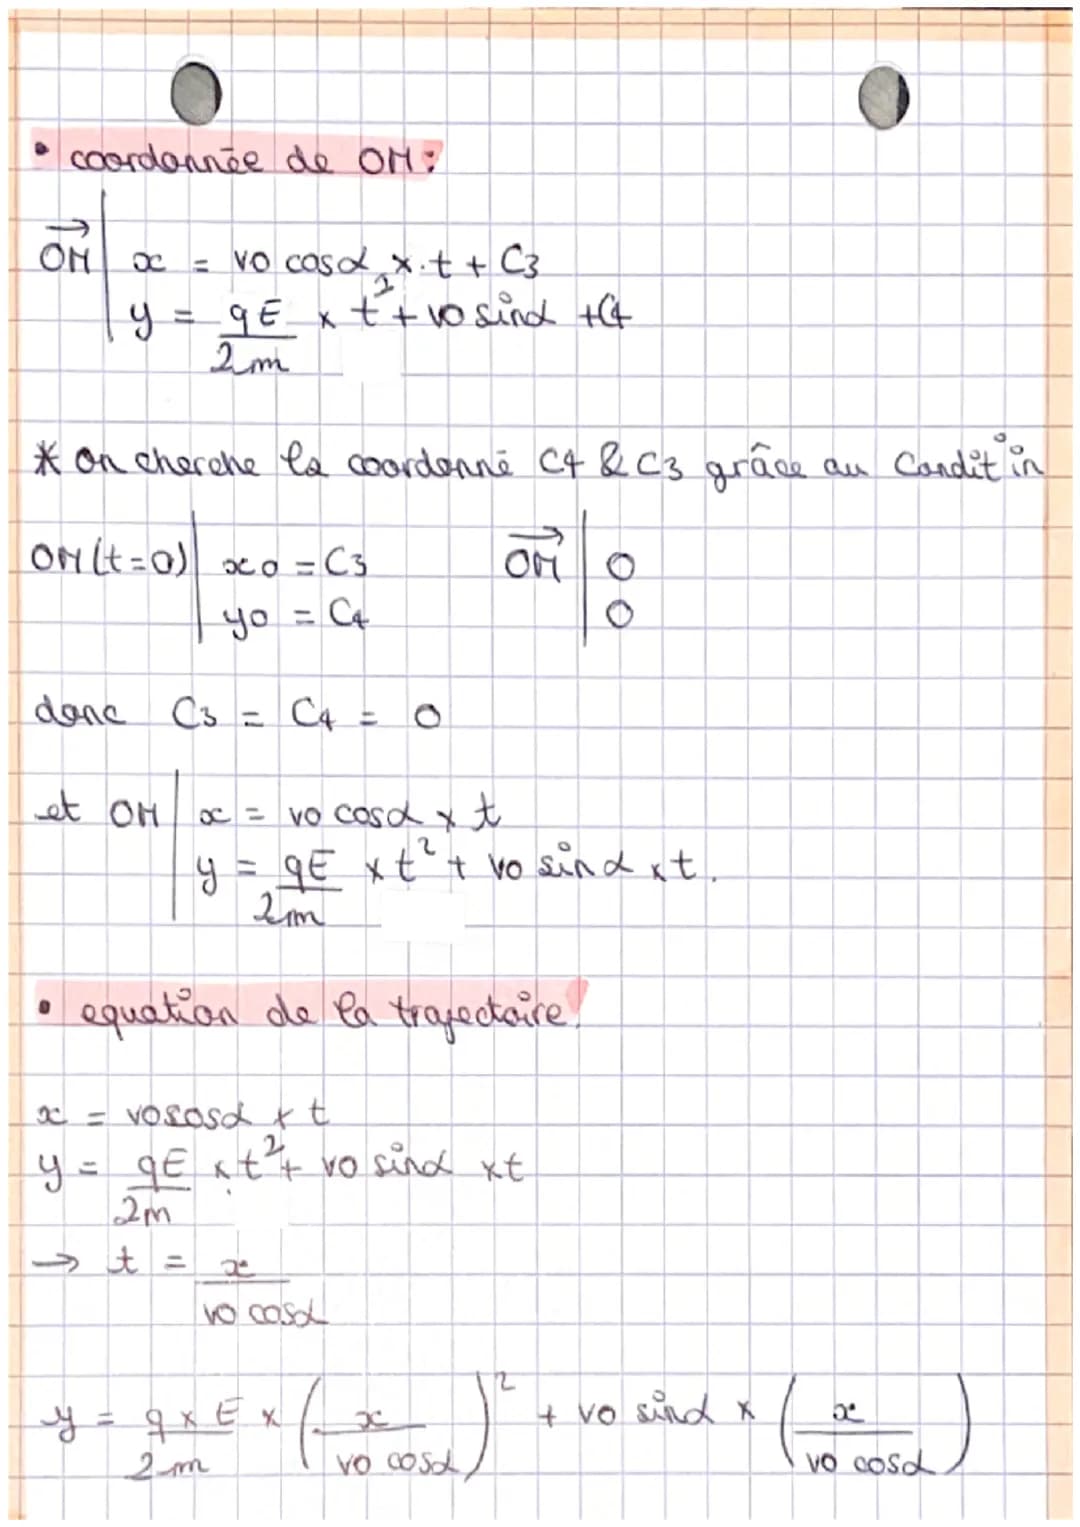 • coordonnée de OM :
OM→ | x = v0 cosα x.t + C3
y = qE/2m x t² + v0 sinα + C4
* on cherche la coordonné C4 & C3 grâce au Condit°in
OM(t=0) | x0 = C3    OM→ | 0
y0 = C4    0
donc C3 = C4 = 0
et OM | x = v0 cosα x t
y = qE/2m x t² + v0 sinα x t.
• equation de la trajectoire.
x = v0sosα x t
y = qE/2m x t² + v0 sinα x t
→ t = x/v0 cosα
y = q x E/2m x (x/v0 cosα)² + v0 sinα x (x/v0 cosα)